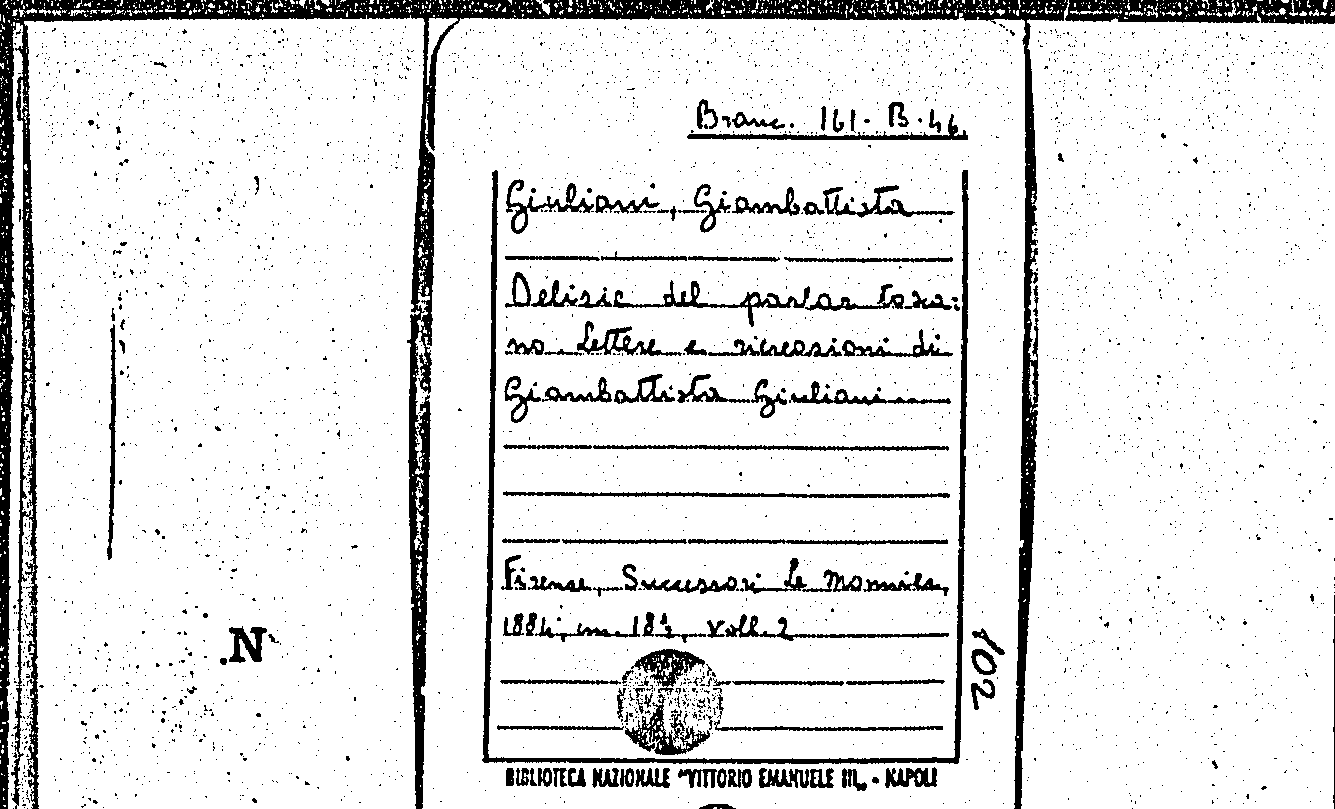 Branc. 161. B. 46.
Giuliani, Giambattista
Delizie del parlar tosca=
no. Lettere e ricreazioni di
Giambattista Giuliani
Firenze, Successori Le Monnier,
1884, in. 18°, voll. 2
.N
102
BIBLIOTECA NAZIONALE "VITTORIO EMANUELE III„ - NAPOLI